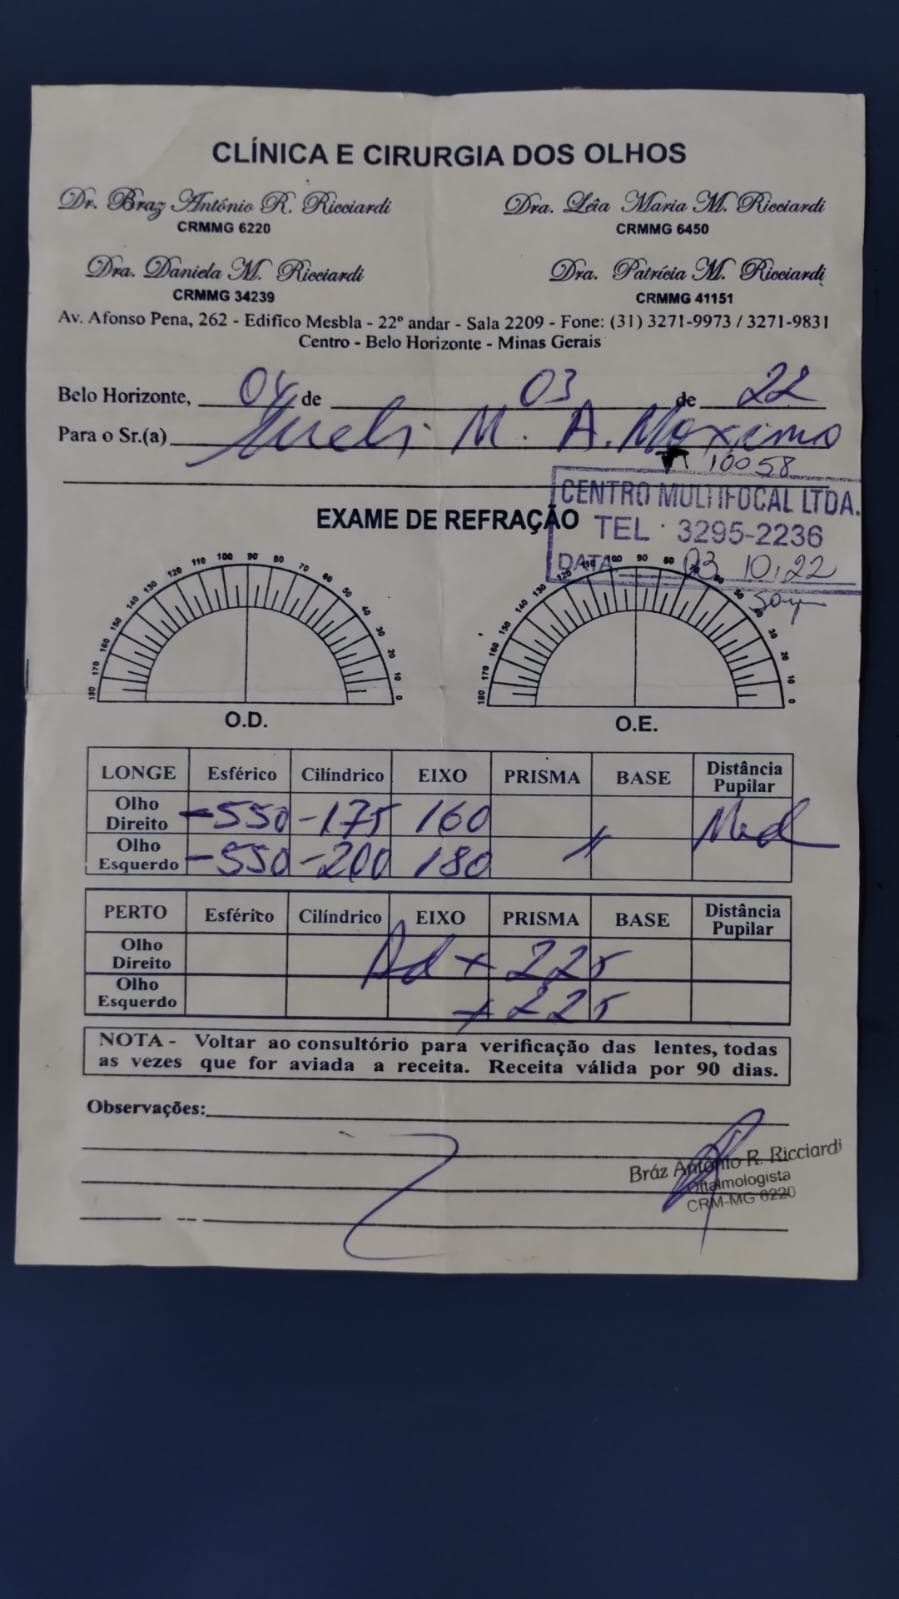 CLÍNICA E CIRURGIA DOS OLHOS
Dr. Braz António R. Ricciardi
CRMMG 6220
Dra. Lêia Maria M. Ricciardi
CRMMG 6450
Dra. Daniela M. Ricciardi
CRMMG 34239
Dra. Patrícia M. Ricciardi
CRMMG 41151
Av. Afonso Pena, 262 - Edifico Mesbla - 22º andar - Sala 2209 - Fone: (31) 3271-9973 / 3271-9831
Centro - Belo Horizonte - Minas Gerais
Belo Horizonte, 04 de 03 de 22
Para o Sr.(a) M. A. Maximo
10058
CENTRO MULTIFOCAL LTDA.
TEL 3295-2236
DATA 03 10,22
EXAME DE REFRAÇÃO
180 170 160 150 140 130 120 110 100 90 80 70 60 50 40 30 20 10 0
180 170 160 150 140 130 120 110 100 90 80 70 60 50 40 30 20 10 0
O.D. O.E.
LONGE Esférico Cilíndrico EIXO PRISMA BASE Distância Pupilar
Olho Direito -550 -175 160
Olho Esquerdo -550 -200 180
PERTO Esférico Cilíndrico EIXO PRISMA BASE Distância Pupilar
Olho Direito Ad + 225
Olho Esquerdo + 225
NOTA - Voltar ao consultório para verificação das lentes, todas
as vezes que for aviada a receita. Receita válida por 90 dias.
Observações:
Bráz António R. Ricciardi
Oftalmologista
CRM-MG 6220